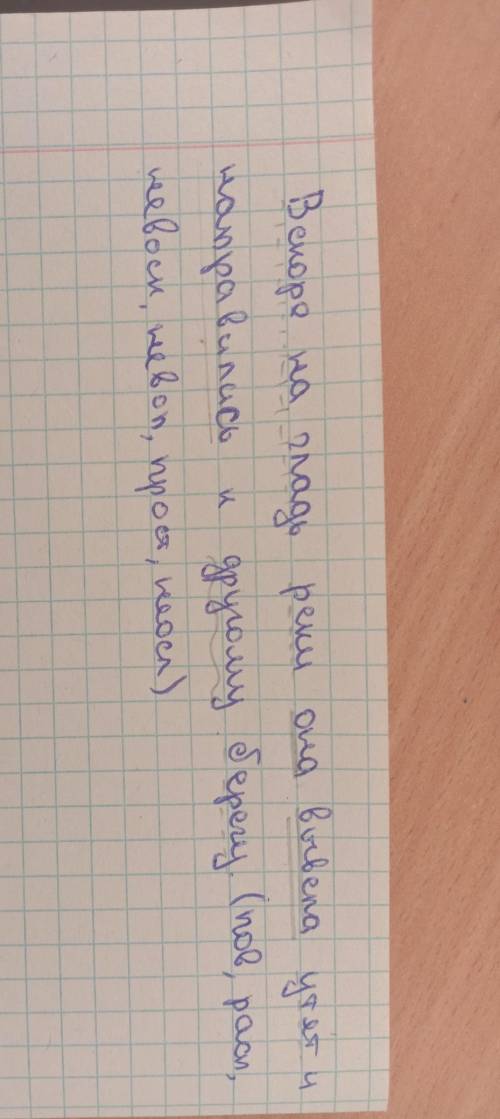 Вскоре на гладь реки она вывела утят и
направились к другому берегу. (пов, расп,
невоск, невоп, прост, неосл)